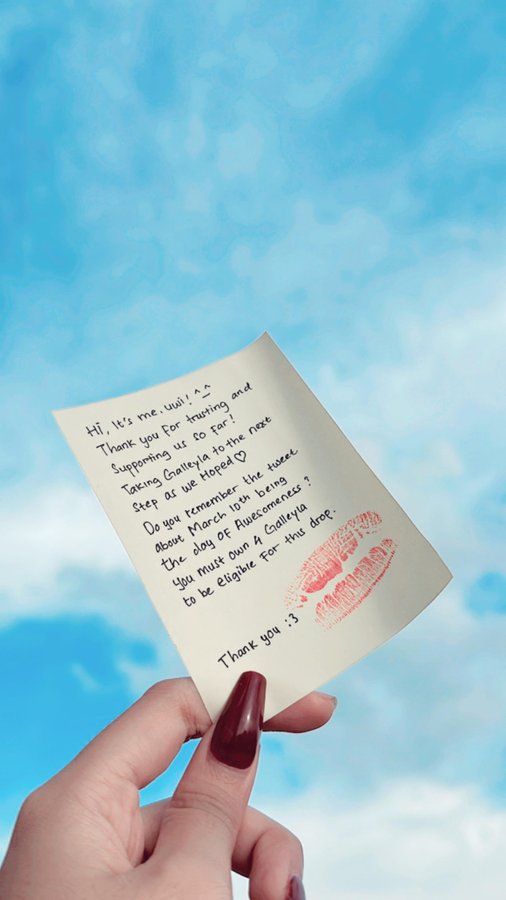 Hi, It's me. uwi! ^_^
Thank you For trusting and
Supporting us so far!
Taking Galleyla to the next
Step as we Hoped♡
Do you remember the tweet
about March 10th being
the day OF Awesomeness?
You must own 4 Galleyla
to be eligible For this drop.
Thank you :3